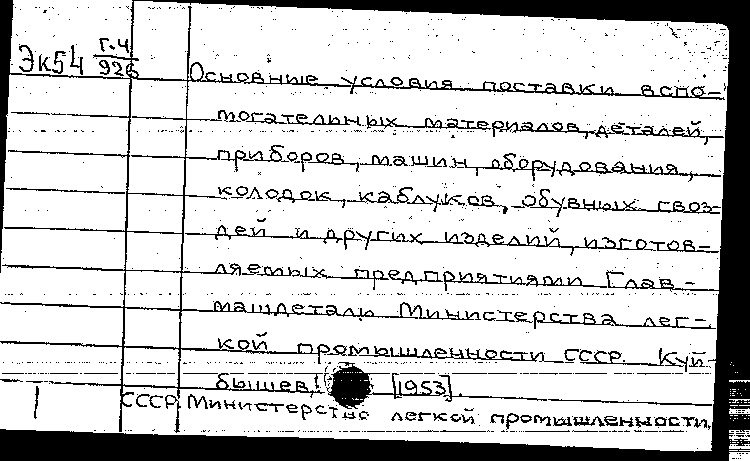 Эк54 Г-4/926
Основные условия поставки вспо-
могательных материалов, деталей,
приборов, машин, оборудования,
колодок, каблуков, обувных гвоз-
дей и других изделий, изготов-
ляемых предприятиями Глав-
машдеталь Министерства лег-
кой промышленности СССР. Куй-
бышев, [1953].
1 СССР. Министерство легкой промышленности.